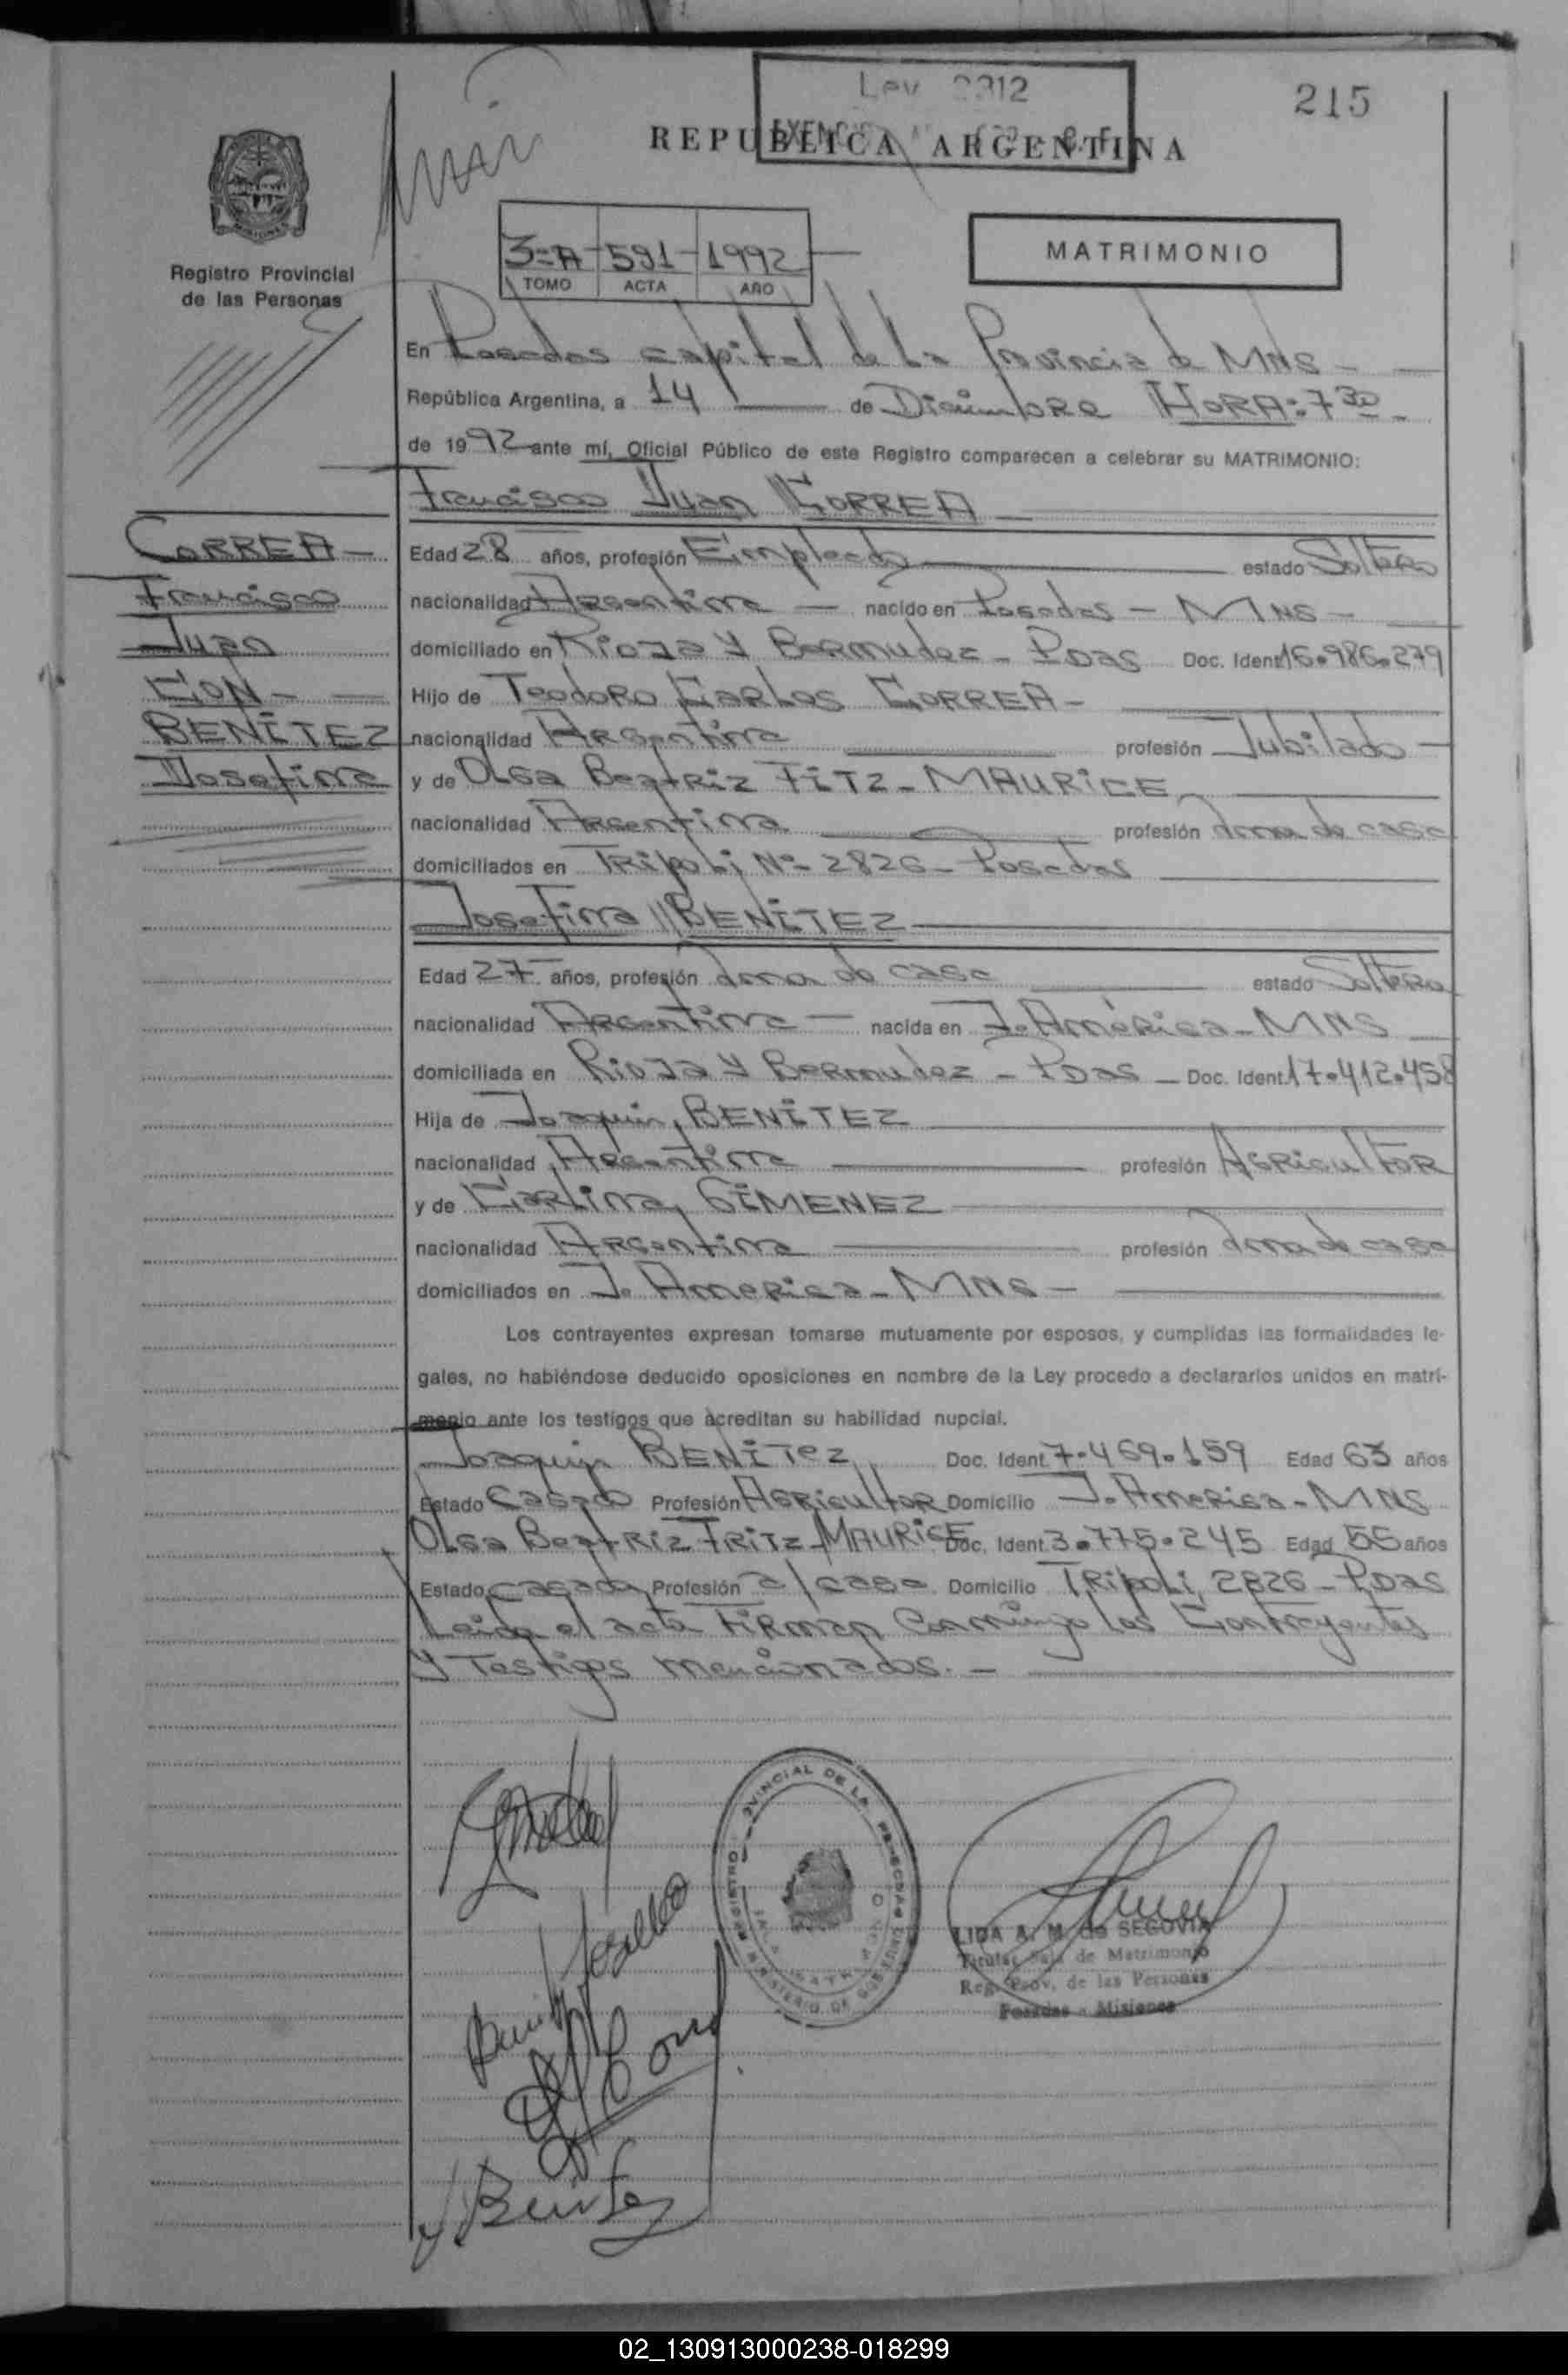 Ley 2312
215
REPUBLICA ARGENTINA
Registro Provincial
de las Personas
3=A 591 1992
TOMO ACTA AÑO
MATRIMONIO
En Posadas capital de la Provincia de MNS -
República Argentina, a 14 de Diciembre HORA: 7 30 -
de 1992 ante mí, Oficial Público de este Registro comparecen a celebrar su MATRIMONIO:
Francisco Juan CORREA
CORREA -
Francisco
Juan
CON -
BENITEZ
Josefina
Edad 28 años, profesión Empleado estado Soltero
nacionalidad Argentina - nacido en Posadas - MNS -
domiciliado en Rioja y Bermudez - Pdas Doc. Ident. 16.986.279
Hijo de Teodoro Carlos CORREA -
nacionalidad Argentina profesión Jubilado -
y de Olga Beatriz FITZ - MAURICE
nacionalidad Argentina profesión ama de casa
domiciliados en Tripoli Nº 2826 - Posadas
Josefina BENITEZ
Edad 27 años, profesión ama de casa estado Soltera
nacionalidad Argentina - nacida en J. América - MNS
domiciliada en Rioja y Bermudez - Pdas - Doc. Ident. 17.412.458
Hija de Joaquin BENITEZ
nacionalidad Argentina profesión Agricultor
y de Carlina GIMENEZ
nacionalidad Argentina profesión ama de casa
domiciliados en J. America - MNS -
Los contrayentes expresan tomarse mutuamente por esposos, y cumplidas las formalidades le-
gales, no habiéndose deducido oposiciones en nombre de la Ley procedo a declararlos unidos en matri-
monio ante los testigos que acreditan su habilidad nupcial.
Joaquin BENITEZ Doc. Ident. 7.469.159 Edad 63 años
Estado Casado Profesión Agricultor Domicilio J. America - MNS
Olga Beatriz FRITZ - MAURICE Doc. Ident. 3.775.245 Edad 55 años
Estado Casada Profesión a/casa Domicilio Tripoli 2826 - Pdas
Leida el acta Firman Conmigo los Contrayentes
y Testigos mencionados. -
LIDA A. M. de SEGOVIA
Titular Sala de Matrimonio
Reg. Prov. de las Personas
Posadas - Misiones
J. Benitez
02_130913000238-018299